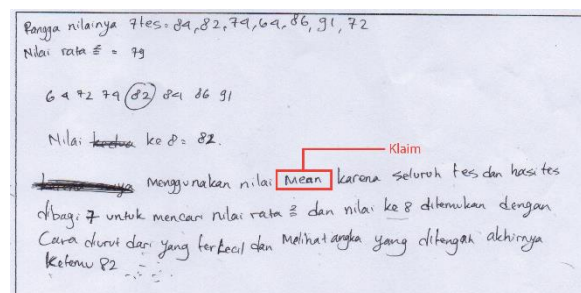 Rangga nilainya 7tes = 84, 82, 74, 64, 86, 91, 72
Nilai rata² = 79
64 72 74 82 84 86 91
Nilai kedua ke 8 = 82.
Klaim
menggunakan nilai Mean karena seluruh tes dan hasi tes
dibagi 7 untuk mencari nilai rata² dan nilai ke 8 ditemukan dengan
Cara diurut dari yang terkecil dan Melihat angka yang ditengah akhirnya
Ketemu 82